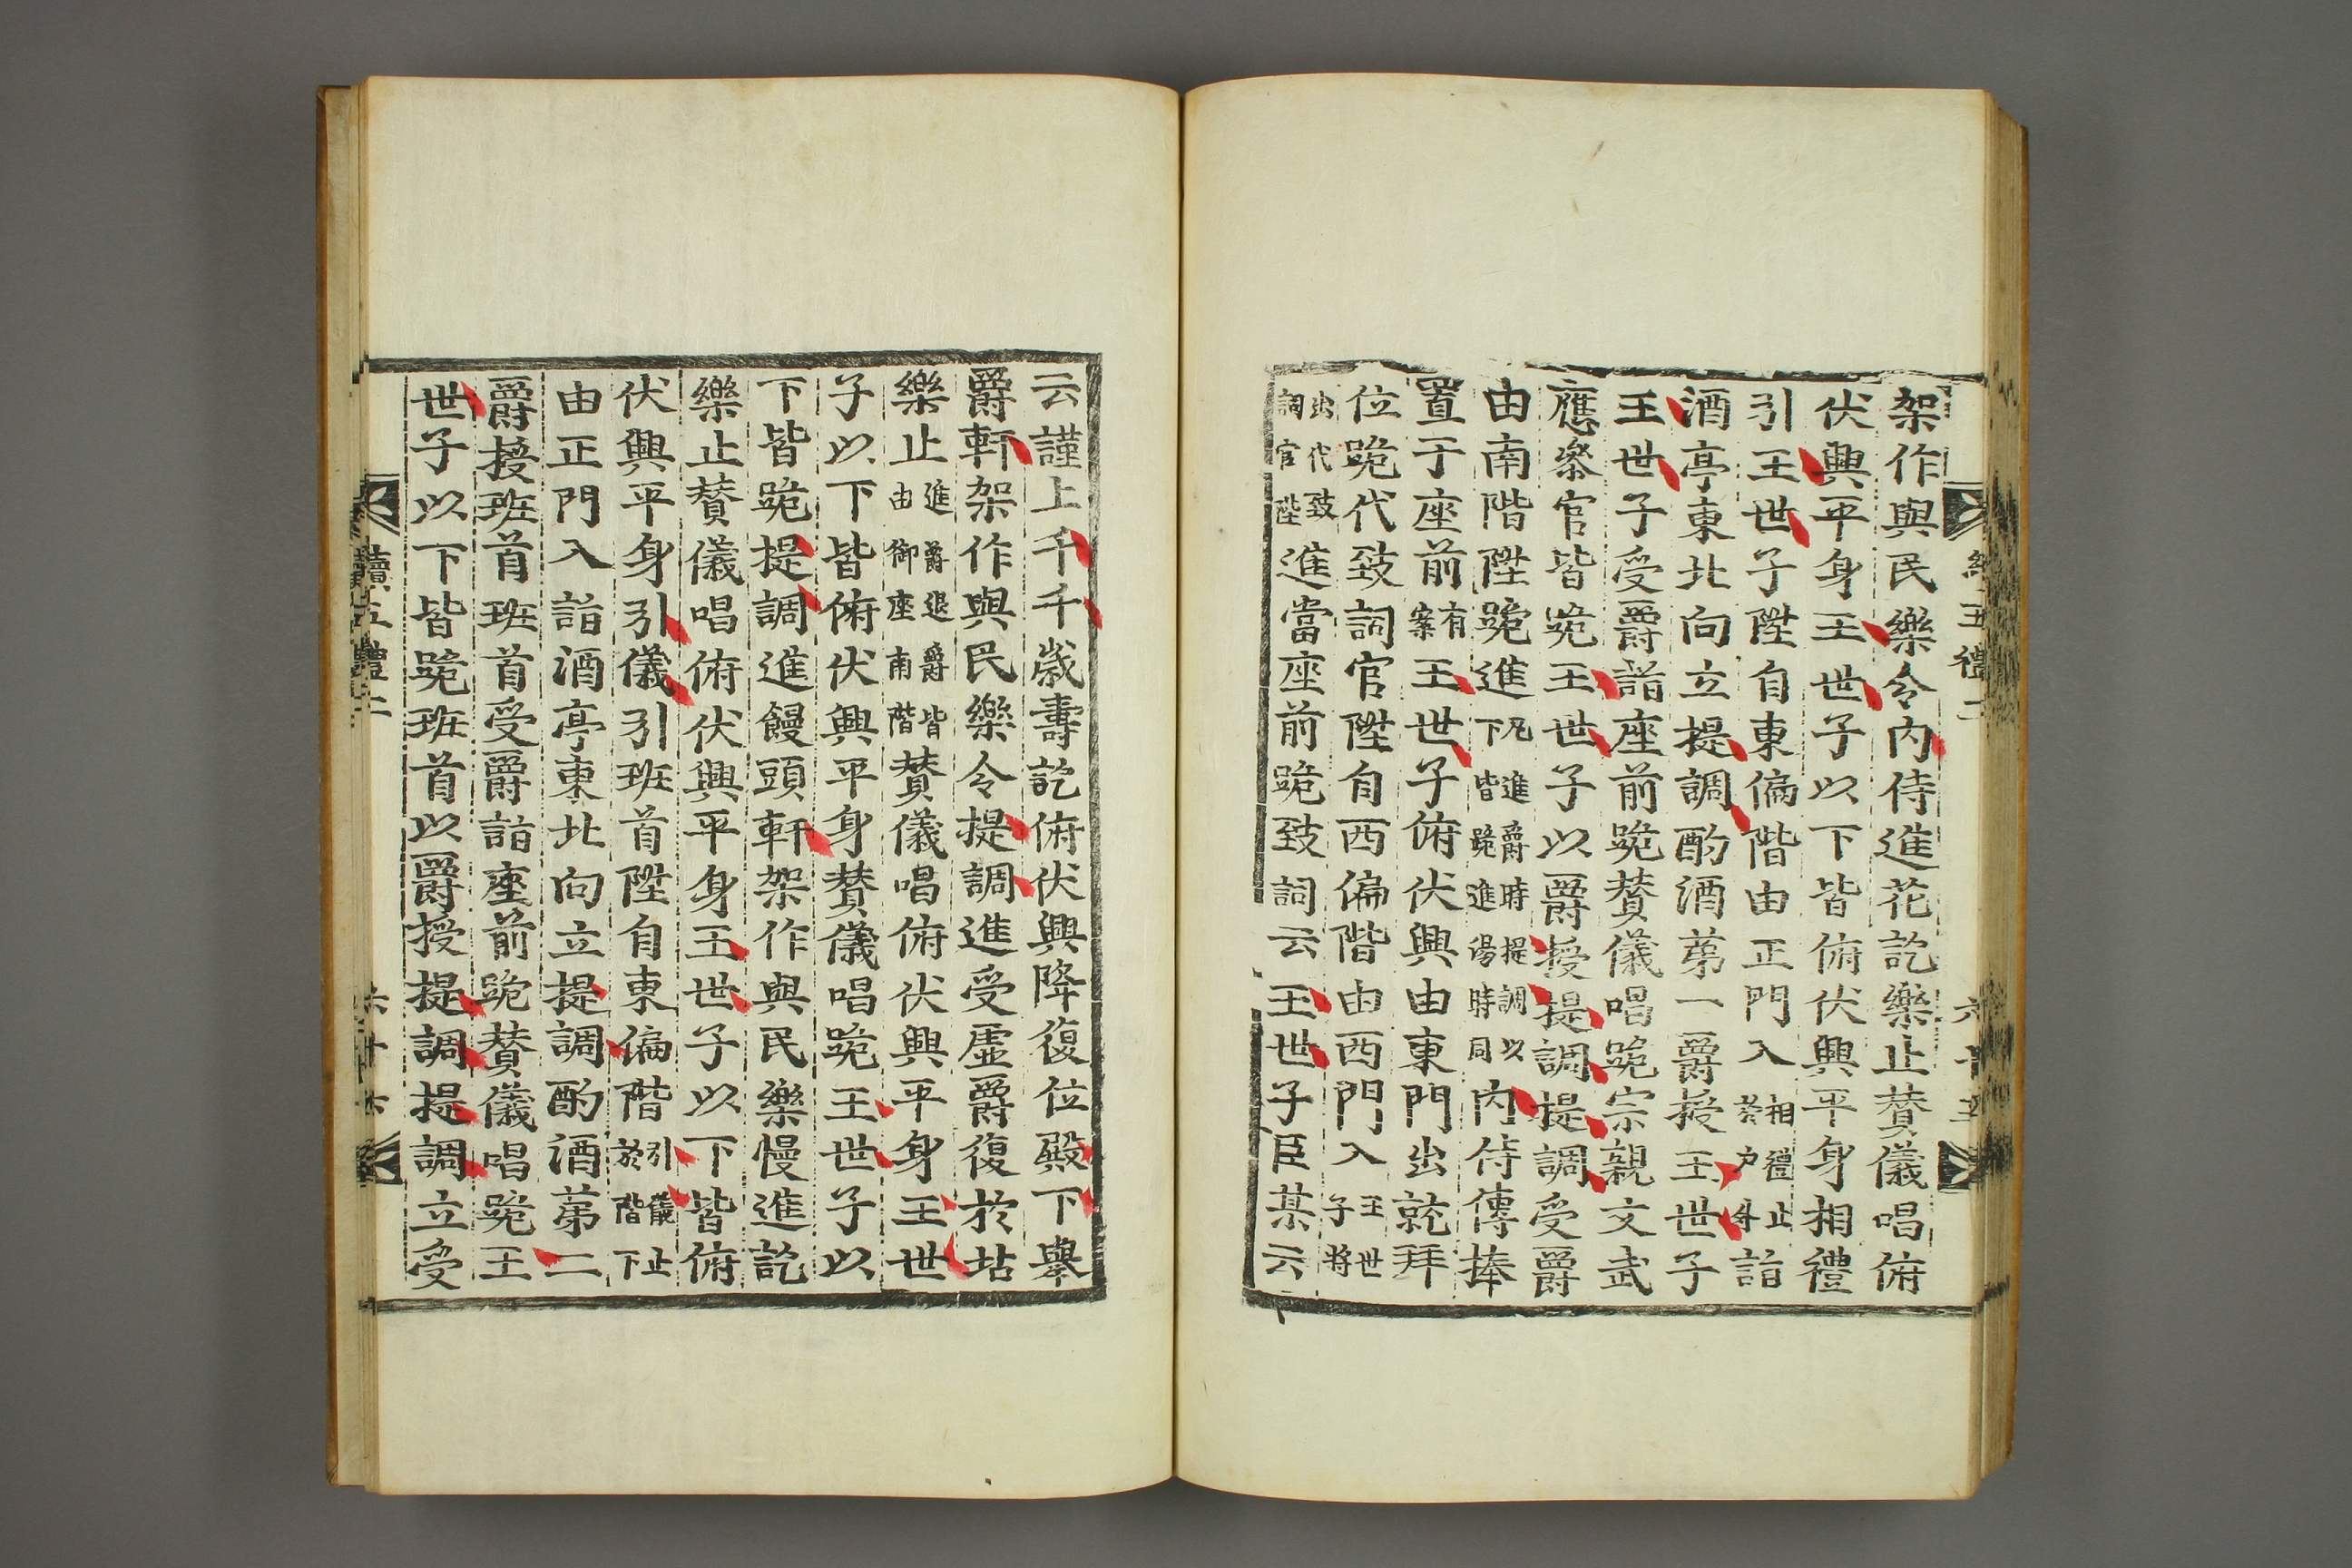 五禮二
架作與民樂令內侍進花訖樂止賛儀唱俯
伏興平身王世子以下皆俯伏興平身相禮
引王世子陞自東偏階由正門入相禮止於戶外詣
酒亭東北向立提調酌酒第一爵授王世子
王世子受爵詣座前跪賛儀唱跪宗親文武
應叅官皆跪王世子以爵授提調提調受爵
由南階陞跪進凡進爵時提調以下皆跪進湯時同內侍傳捧
置于座前有案王世子俯伏興由東門出就拜
位跪代致詞官陞自西偏階由西門入王世子將
出代致詞官陞進當座前跪致詞云王世子臣某云
云謹上千千歲壽訖俯伏興降復位殿下擧
爵軒架作與民樂令提調進受虛爵復於坫
樂止進爵退爵皆由御座南階賛儀唱俯伏興平身王世
子以下皆俯伏興平身賛儀唱跪王世子以
下皆跪提調進饅頭軒架作與民樂慢進訖
樂止賛儀唱俯伏興平身王世子以下皆俯
伏興平身引儀引班首陞自東偏階引儀止於階下
由正門入詣酒亭東北向立提調酌酒第二
爵授班首班首受爵詣座前跪賛儀唱跪王
世子以下皆跪班首以爵授提調提調立受
續五禮二